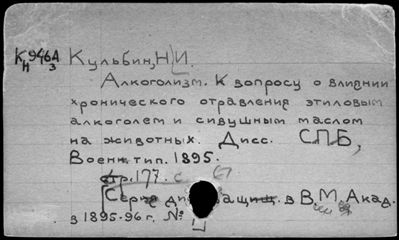 Кульбин, Н.И.
Алкоголизм. К вопросу о влиянии
хронического отравления этиловым
алкоголем и сивушным маслом
на животных. Дисс. СПБ,
Военн. тип. 1895.
стр. 177. с. 67
Серия защищ. в В.М. Акад.
в 1895-96 г. №